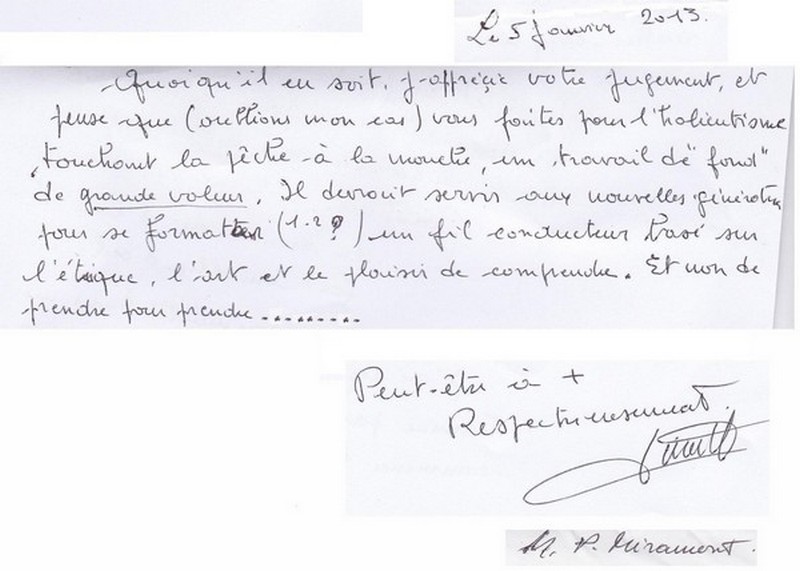 Le 5 janvier 2013.
Quoiqu'il en soit, j'apprécie votre jugement, et
pense que (oublions mon cas) vous faites pour l'halieutisme
touchant la pêche à la mouche, un travail de "fond"
de grande valeur. Il devrait servir aux nouvelles génération
pour se formater (1.2 ?) un fil conducteur basé sur
l'étique, l'art et le plaisir de comprendre. Et non de
prendre pour prendre .........
Peut-être à +
Respectueusement.
M. P. Miramont.